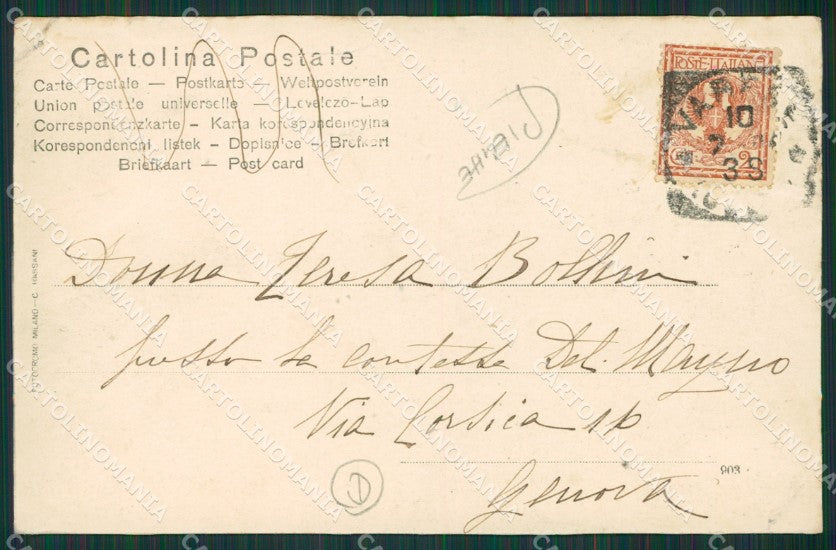 Cartolina Postale
Carte Postale — Postkarte — Weltpostverein
Union postale universelle — Levelezö-Lap
Correspondenzkarte - Karta korespondencyjna
Korespondencni listek - Dopisnice - Brefkort
Briefkaart — Post card
POSTE ITALIANE
10
2
38
Donna Teresa Bollini
presso la contessa Del Mayno
Via Corsica 16
Genova
903
D
CARTOLINOMANIA